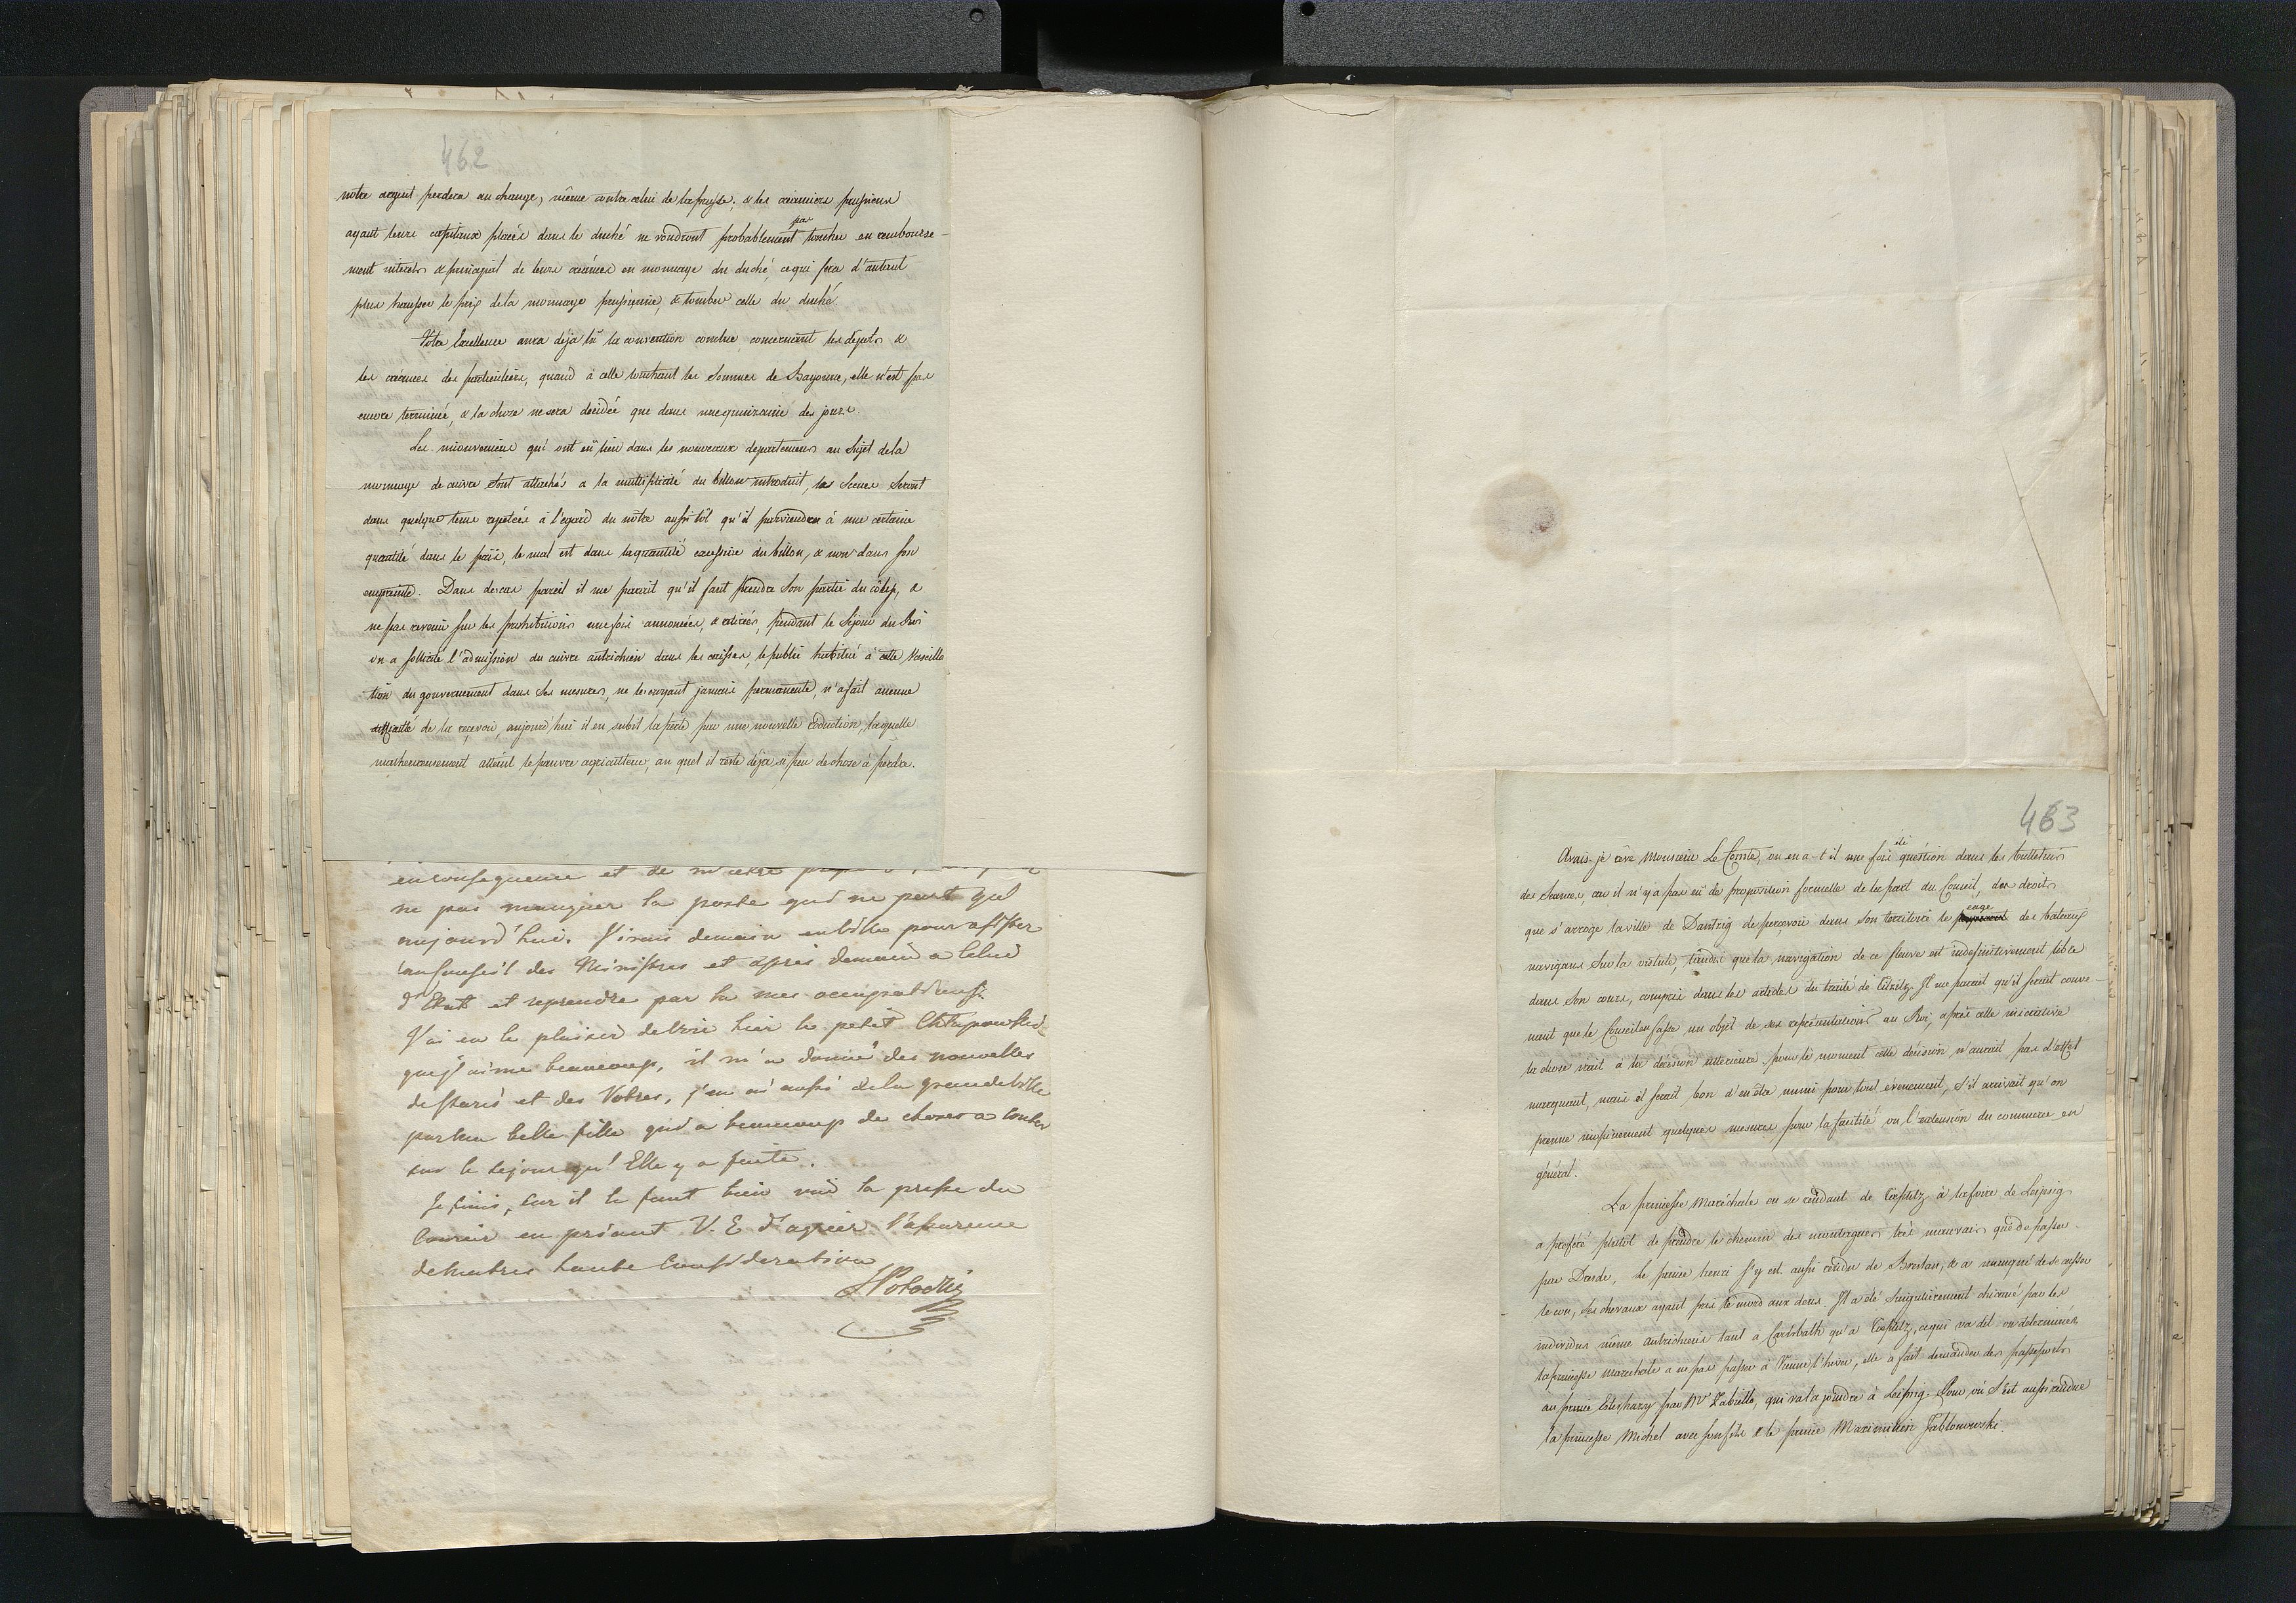 462
nôtre argent perdera au change, même contre celui de la prusse; & les créanciers prussiens
ayant leurs capitaux placés dans le duché ne voudront probablement pas toucher en rembourse-
ment interets & principal de leurs créances en monnaye du duché, ce qui fera d'autant
plus hausser le prix de la monnaye prussienne, & tomber celle du duché.
Votre Excellence aura déja lû la convention conclue, concernant les dépots &
les créances des particuliers, quand à celle touchant les Sommes de Bayonne, elle n'est pas
encore terminée, & la chose ne sera decidée que dans une quinzaine des jours.
Les inconveniens qui ont eû lieu dans les nouveaux departemens au Sujet de la
monnaye de cuivre sont attachés a la multiplicité du billon introduit, les Scenes Seront
dans quelque tems repetées à l'egard du nôtre aussi tôt qu'il parviendra à une certaine
quantité dans le païs, le mal est dans la quantité excessive du billon, & non dans son
empreinte. Dans des cas pareil il me parait qu'il faut prendre son partie du côup, &
ne pas revenir sur les prohibitions une fois annoncées, & retirées, pendant le Sejour du Roi
on a sollicité l'admission du cuivre autrichien dans les caisses, le public habitué à cette Vascilla
tion du gouvernement dans ses mesures, ne les croyant jamais permanente, n'a fait aucune
difficulté de la reçevoir, aujourd'hui il en subit la perte par une nouvelle réduction, laquelle
malheureusement atteint le pauvre agriculteur, au quel il reste déja si peu de chose à perdre.
en consequence et de
ne pas manquer la poste qui ne part qu'
aujourd'hui. J'irais demain en ville pour assister
au Conseil des Ministres et après demain a celui
d'Etat et reprendre par la mes occupations.
J'ai eu le plaisir de voir hier le petit Chlapowski
que j'aime beaucoup, il m'a donné des nouvelles
de Paris et des Votres, j'en ai aussi de la grande ville
par ma belle fille qui a beaucoup de choses a conter
sur le sejour qu'Elle y a faite.
Je finis, car il le faut bien vuë la presse du
Courier en priant V. E. d'agréer l'assurence
de ma tres haute Consideration
SPotocki
463
Avais-je rêvé Monsieur Le Comte, ou en a-t-il une fois été question dans les bulletins
des Seances, ou il n'y a pas eû de proposition formelle de la part du Conseil, des droits
que s'arroge la ville de Dantzig de perçevoir dans son territoire le péage des bateaux
navigans Sur la vistule, tandis que la navigation de ce fleuve est indefinitivement libre
dans son cours, comprise dans les articles du traité de Tilsitz. Il me parait qu'il serait conve-
nant que le Conseil en fasse un objet de ses représentations au Roi, après cette
la chose irait à la décision ulterieure. pour le moment cette décision n'aurait pas d'effet
marquant, mais il serait bon d'en être muni pour tout évenement, s'il arrivait qu'on
prenne inopinement quelques mesures pour la facilité ou l'extension du commerce en
général.
La princesse Maréchale en se rendant de Toeplitz à la foire de Leipsig
a préferé plutôt de prendre le chemin des montagnes très mauvais que de passer
par Dresde, le prince henri s'y est aussi rendu de Breslau, & a manqué de se casser
le cou, ses chevaux ayant pris le mord aux dens. Il a été Singulièrement chicané par les
individus même autrichiens tant a Carlsbath qu'a Toeplitz, ce qui va dit on determiner
la princesse maréchale a ne pas passer à Vienne l'hiver, elle a fait demander des passeports
au prince Esterhazy par Mr Zabiello, qui va la joindre à Leipsig. Pour où s'est aussi rendue
la princesse Michel avec son fils & le prince Maximilien Jablonowski.